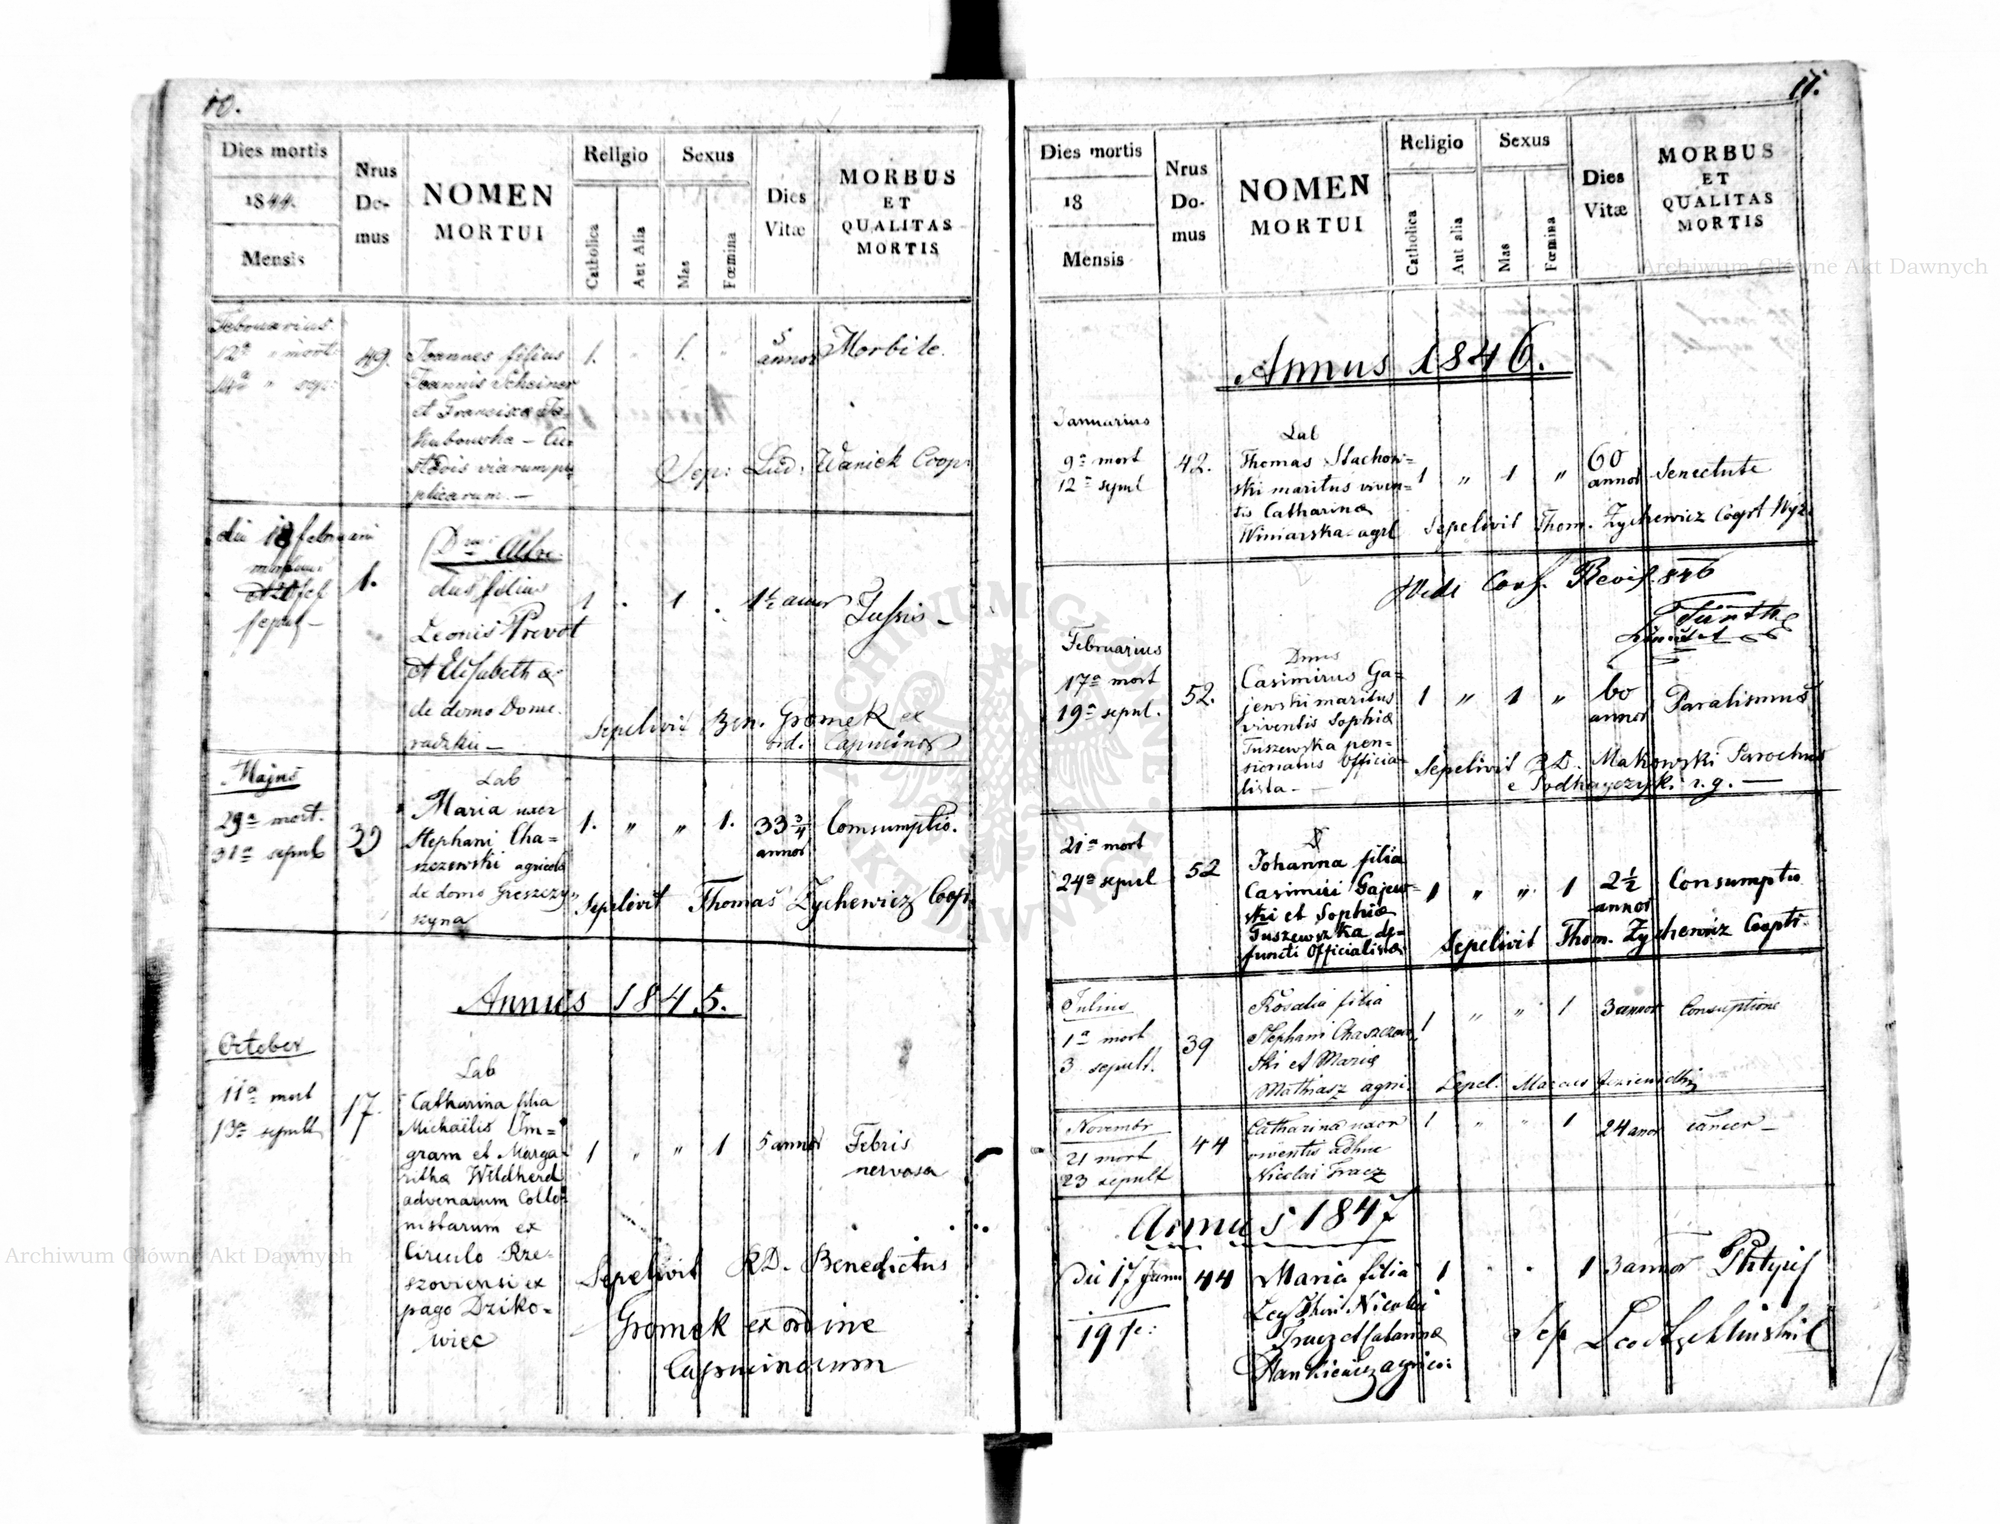 10.
Dies mortis
1844.
Mensis
Nrus
Do-
mus
NOMEN
MORTUI
Religio
Catholica
Aut Alia
Sexus
Mas
Fœmina
Dies
Vitæ
MORBUS
ET
QUALITAS
MORTIS
Februarius
12a " mort
14a " sep:
49.
Joannes filius
Joannis Scheiner
et Francisca Ja-
kubowska – Cu-
stodis viarum pu-
plicarum. –
1. " 1. "
5
annor
Morbile.
Sep: Lud: Waniek Coop:
die 18 februarii
mortuus
et 20 fef
sepul –
1.
filius
Leonis Prevot
et Elisabeth æ
de domo Dome-
radzki –
1 . 1 .
1½ annor
Tussis –
Sepelivit Ben. Gromek ex
ord. Capucinor
Majus
29a mort.
31a sepul
39
Lab
Maria uxor
Stephani Cha=
szczewski agricola
de domo Greszczy-
szyna
1. " " 1.
33 3/4
annor
Comsumptio.
Sepelivit Thomas Zychewicz Coop.
Annus 1845.
October
11a mort
13a sepult
17.
Lab
Catharina filia
Michailis Um=
gram et Marga-
ritha Wildherd
advenarum Collo-
nistarum ex
Circulo Rze-
szoviensi ex
pago Dziko=
wiec
1 " " 1
5 annor
Febris
nervosa
Sepelivit RD. Benedictus
Gromek ex ordine
Capucinorum
11.
Dies mortis
18
Mensis
Nrus
Do-
mus
NOMEN
MORTUI
Religio
Catholica
Aut alia
Sexus
Mas
Fœmina
Dies
Vitæ
MORBUS
ET
QUALITAS
MORTIS
Annus 1846.
Januarius
9a mort
12a sepul
42.
Lab
Thomas Stachow=
ski maritus viven=
tis Catharinæ
Winiarska agrl
1 " 1 "
60
annor
Senectute
Sepelivit Thom. Zychewicz Coopt Wyż.
Vidi Conf. Revis. 846
Februarius
17a mort
19a sepul.
52.
Dnus
Casimirus Ga=
jewski maritus
viventis Sophiæ
Tuszewska pen=
sionatus Officia=
lista –
1 " 1 "
60
annor
Paralismus
Sepelivit RD. Makowski Parochus
e Podhayczyk. r. g. –
21a mort
24a sepul
52
Johanna filia
Casimiri Gajew=
ski et Sophiæ
Tuszewska de=
functi Officialistæ
1 " " 1
2½
annor
Consumptio
Sepelivit Thom. Zychewicz Coopt.
Julius
1a mort
3 sepult.
39
Rosalia filia
Stephani Chaszczew
ski et Mariæ
Mathiasz agri
1 " " 1
3 annor
Consuptione
Sepel. Marcus
Novembr
21 mort
23 sepult
44
Catharina uxor
viventis adhuc
Nicolai Tracz
1 " " 1
24 anor
cancer –
Annus 1847
Die 17 Janu
19 se:
44
Maria filia
Nicolai
Tracz et
Stankiewicz agrico:
1 " . 1
3 annor
Phtysis
Sep Leo
Archiwum Główne Akt Dawnych
Archiwum Główne Akt Dawnych
ARCHIWUM GŁÓWNE
AKT DAWNYCH